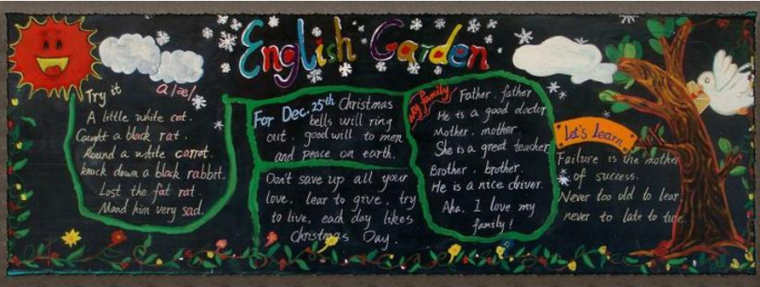 English Garden
Try it
a/æ/
A little white cat.
Caught a black rat.
Round a white carrot.
knock down a black rabbit.
Lost the fat rat.
Mand him very sad.
For Dec. 25th Christmas
bells will ring
out. good will to men
and peace on earth.
Don't save up all your
love. lear to give. try
to live, each day likes
Christmas Day.
My family
Father. father
He is a good doctor
Mother. mother
She is a great teacher
Brother. brother.
He is a nice driver.
Aha. I love my
family!
Let's learn
Failure is the mother
of success.
Never too old to lear
never to late to